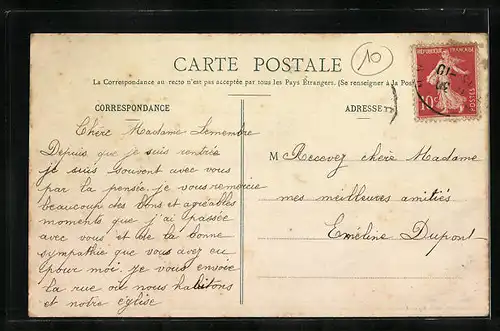 CARTE POSTALE
10
La Correspondance au recto n'est pas acceptée par tous les Pays Étrangers. (Se renseigner à la Poste
RÉPUBLIQUE FRANÇAISE
POSTES
10
CORRESPONDANCE
ADRESSE
Chère Madame Lemembre
Depuis que je suis rentrée
je suis souvent avec vous
par la pensée. je vous remercie
beaucoup des bons et agréables
moments que j'ai passée
avec vous et de la bonne
sympathie que vous avez eu
pour moi. je vous envoie
la rue où nous habitons
et notre église
M Recevez chère Madame
mes meilleures amitiés
Eméline Dupont